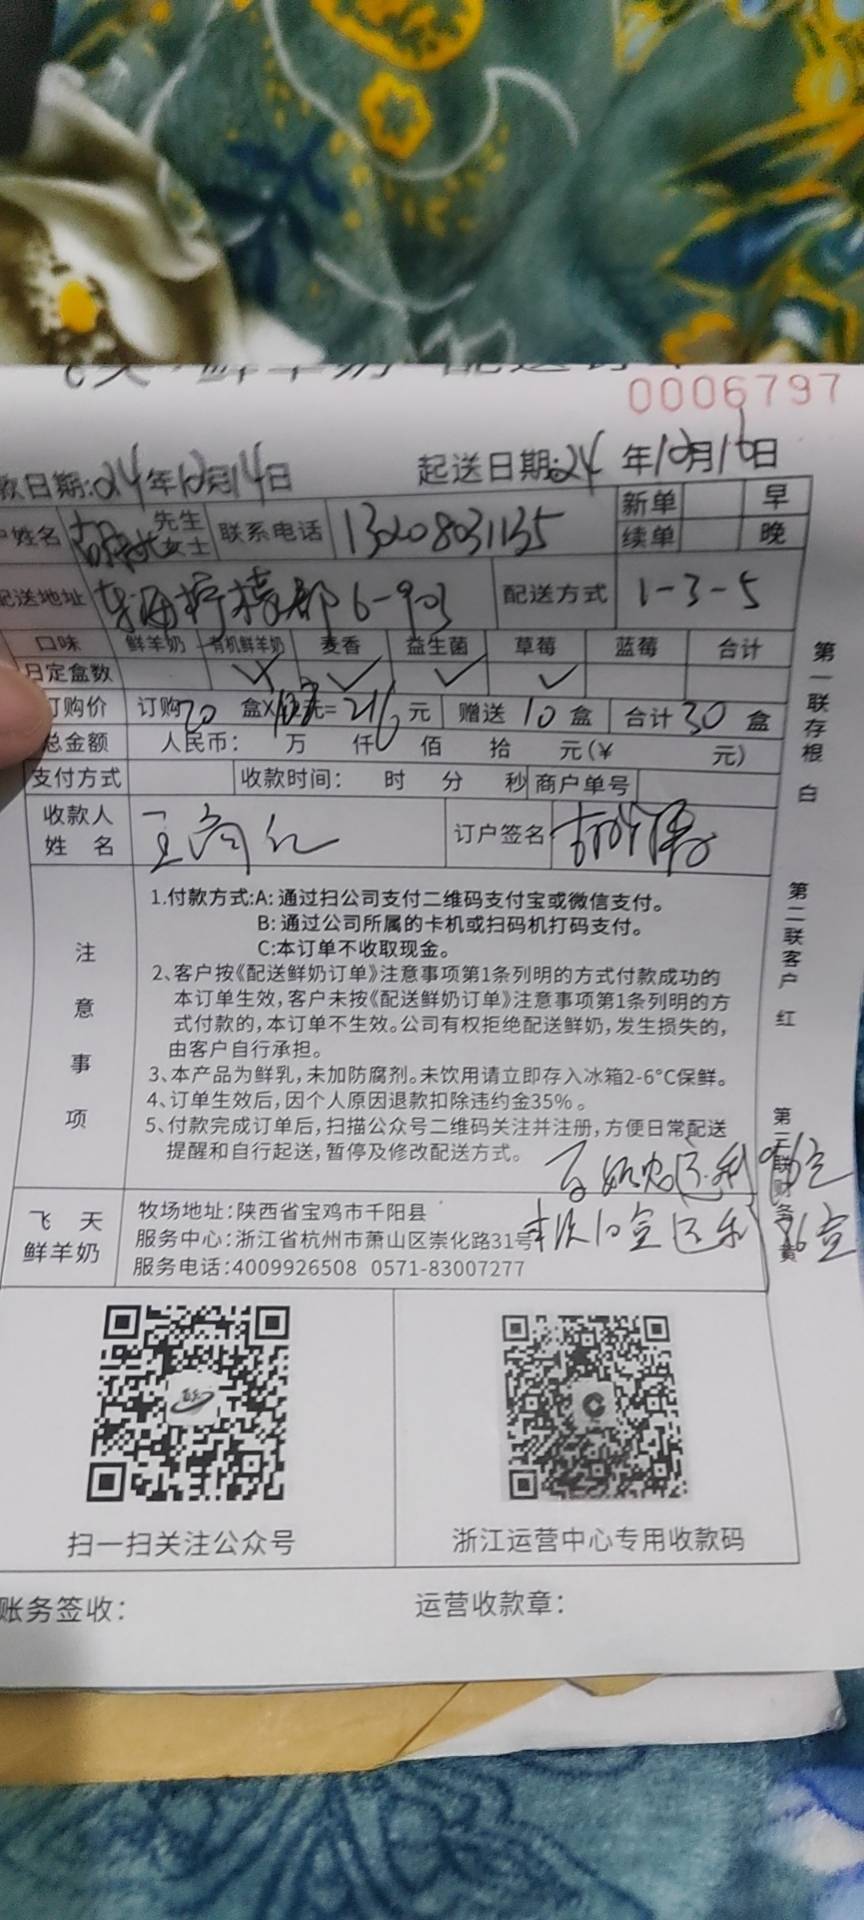 0006797
款日期:24年10月14日 起送日期:24年10月16日
户姓名 先生 女士 联系电话 13208031135 新单 早
续单 晚
配送地址 6-903 配送方式 1-3-5
口味 鲜羊奶 有机鲜羊奶 麦香 益生菌 草莓 蓝莓 合计
日定盒数 ✓ ✓ ✓ ✓
订购价 订购20盒X 元=216元 赠送10盒 合计30盒
总金额 人民币: 万 仟 佰 拾 元(¥ 元)
支付方式 收款时间: 时 分 秒 商户单号
收款人
姓 名 订户签名
注意事项
1.付款方式:A:通过扫公司支付二维码支付宝或微信支付。
B:通过公司所属的卡机或扫码机打码支付。
C:本订单不收取现金。
2、客户按《配送鲜奶订单》注意事项第1条列明的方式付款成功的
本订单生效,客户未按《配送鲜奶订单》注意事项第1条列明的方
式付款的,本订单不生效。公司有权拒绝配送鲜奶,发生损失的,
由客户自行承担。
3、本产品为鲜乳,未加防腐剂。未饮用请立即存入冰箱2-6°C保鲜。
4、订单生效后,因个人原因退款扣除违约金35%。
5、付款完成订单后,扫描公众号二维码关注并注册,方便日常配送
提醒和自行起送,暂停及修改配送方式。
本次10盒
飞 天
鲜羊奶
牧场地址:陕西省宝鸡市千阳县
服务中心:浙江省杭州市萧山区崇化路31号
服务电话:4009926508 0571-83007277
第一联存根 白
第二联客户 红
第三联财务 黄
扫一扫关注公众号 浙江运营中心专用收款码
账务签收: 运营收款章: